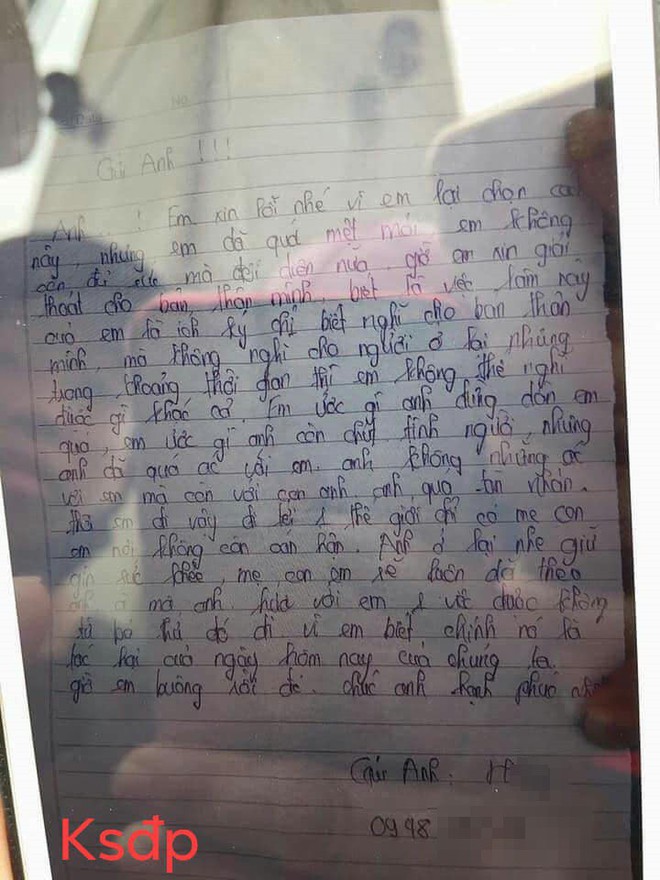 Gửi Anh !!!
Anh..! Em xin lỗi nhé vì em lại chọn
nầy, nhưng em đã quá mệt mỏi em không
còn đi mà diện nữa giờ em xin giải
thoát cho bản thân mình, biết là việc làm này
của em là ích kỷ chỉ biết nghĩ cho bản thân
mình, mà không nghĩ cho người ở lại nhưng
trong khoảng thời gian thì em không thể nghĩ
được gì khác cả. Em ước gì anh đừng dồn em
quá, em ước gì anh còn chút tình người, nhưng
anh đã quá ác với em. anh không những ác
với em mà còn với con anh. anh quá tàn nhẫn.
thôi em đi vậy đi tới 1 thế giới chỉ có mẹ con
em nơi không còn oán hận. Anh ở lại nhé giữ
gìn sức khỏe, mẹ con em sẽ luôn dõi theo
anh à mà anh hứa với em 1 việc được không
từ bỏ thứ đó đi vì em biết chính nó là
tác hại của ngày hôm nay của chúng ta.
giờ em buông rồi đó. chúc anh hạnh phúc
Gửi Anh: H
0948
Ksđp